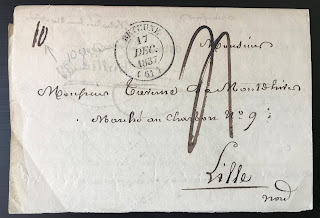 10
BETHUNE
17
DEC.
1837
(61)
Monsieur
Monsieur Taverne de Montdhiver
Marché au Charbon No 9
Lille
Nord